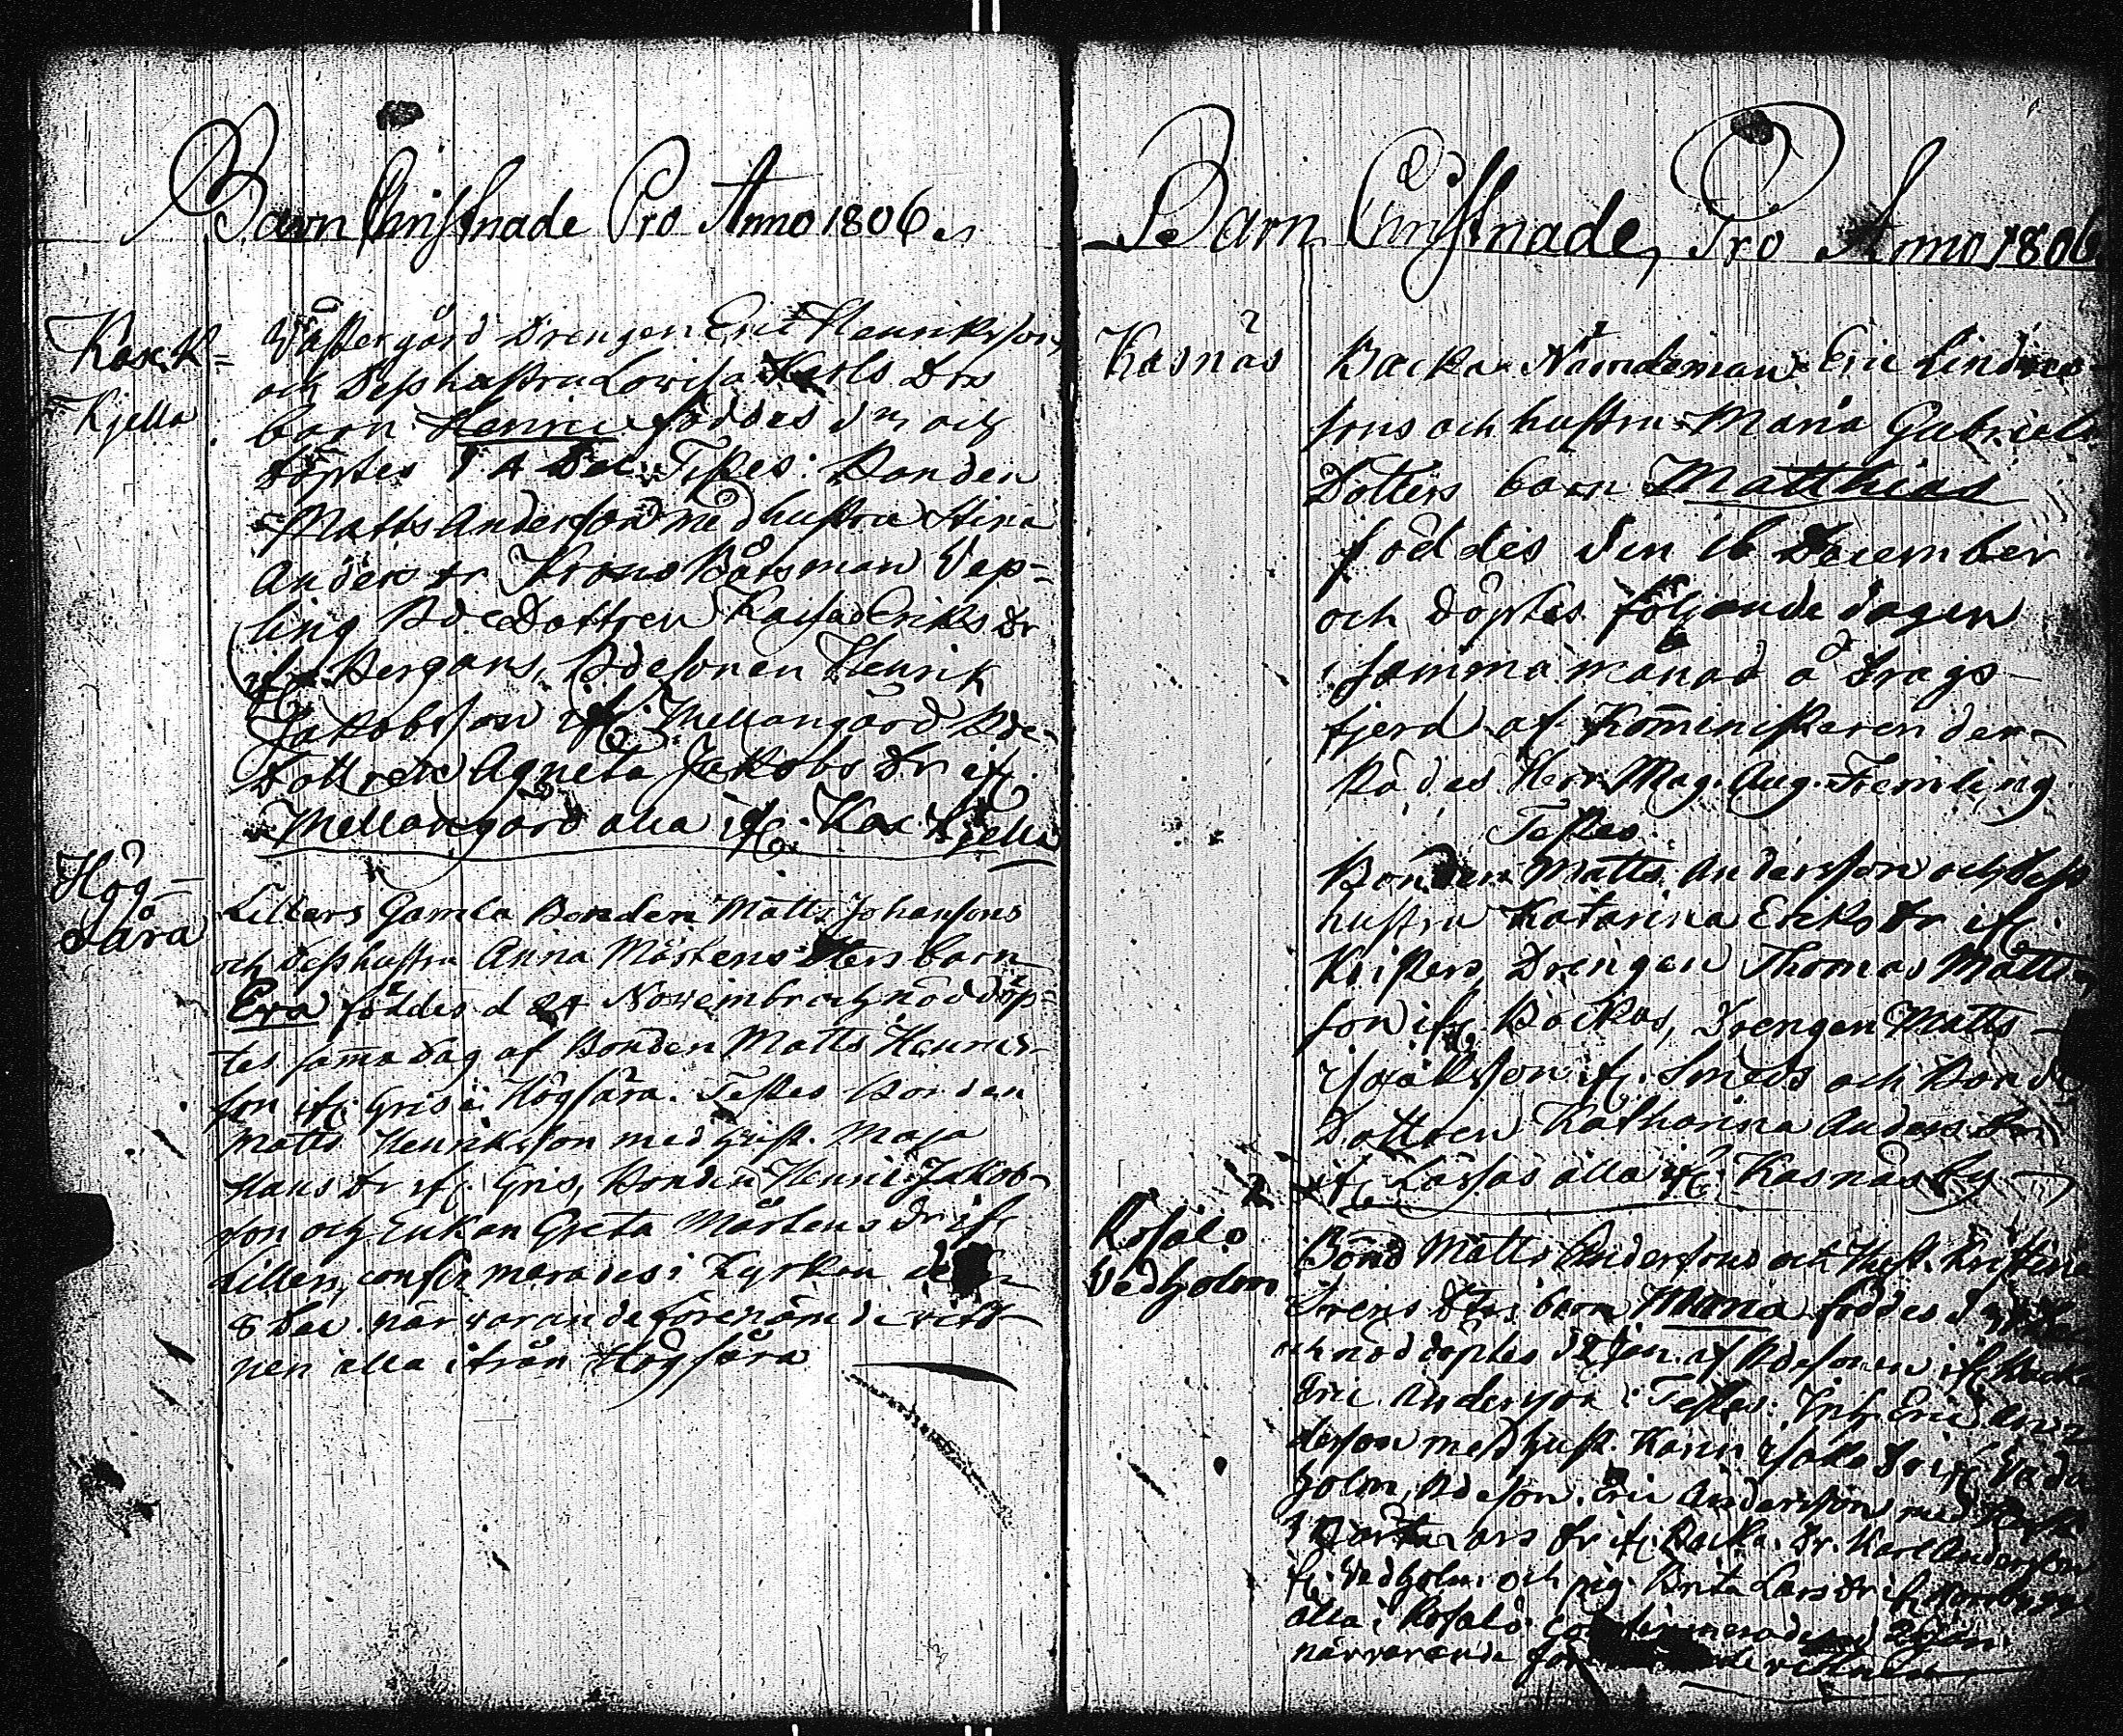 Barn Christnade Pro Anno 1806.
Kasck=
Kjella
Wästergård Drengen Eric Henrikssons
och Dess hustru Lovisa Karls Drs
barn Henric föddes d. och
döptes d 4 Dec. Testes: Bonden
Matts Andersson med hustru Stina
Anders dr Krono Båtsman Vep=
ling Bde Dottren Kaisa Eriks Dr
if. Bergans, Bdesonen Henrik
Jakobsson if. Mellangård Bde
Dottren Agneta Jakobs Dr if.
Mellangård alla if. Kas. Kjella
Hög-
Sara
Lillars Gamla Bonden Matts Johansons
och dess hustru Anna Mårtens Dters barn
Eva föddes d 24 Novembr och nöddöp=
tes samma dag af Bonden Matts Henrics-
son if. Gris i Högsåra. Testes Bonden
Matts Henriksson med hust. Maja
Hans Dr if. Gris, Bonden Henric Jakob-
son och Enkan Greta Mårtens dr if.
Lillars, confirmerades i Kyrkan den
8 Dec. närvarande förenämde vitt-
nen alla ifrån Högsåra
Barn Christnade, Pro Anno 1806
Kasnäs
Backa Nämdeman Eric Lindroos-
sons och hustru Maria Gabriels
Dotters barn Matthias
föddes den 16 December
och döptes följande dagen
i samma månad å Drags-
fjerd af Komministeren der-
städes Herr Mag. Aug. Fremling
Testes.
Bonden Matts Andersson och dess
hustru Katarina Ericks dr if.
Krispers, Drengen Thomas Matts-
son if. Backas, Drengen Matts
Isaaksson if. Smeds och Bonde
Dottren Katharina Anders Dr
if. Lassas alla if. Kasnäs by
Rosalo
Vedholm
Bond Matts Anderssons och Hust. Kristina
barn Maria föddes d.
och nöddöptes d 2 Jan. af Bdesonen if. Backa
Eric Andersson. Testes: Inh. Eric An-
dersson med hust. Karin Isaks Dr if. Ved-
holm, Bdeson. Eric Andersson med
dr if. Backa. Dr. Karl Andersson
if. Vedholm och pig. Brita Lars dr if.
alla i Rosalo. Confirmerades d 2 Jan.
närvarande vittnen